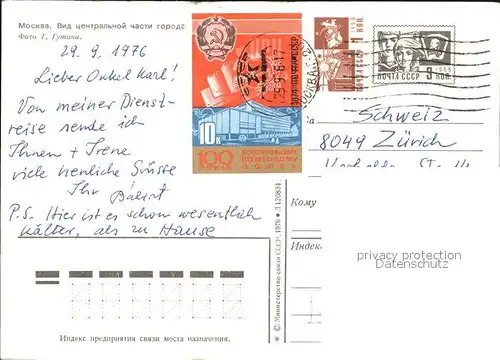 Москва. Вид центральной части города
Фото Т. Гутина.
29. 9. 1976
Lieber Onkel Karl!
Von meiner Dienst-
reise sende ich
Ihnen + Irene
viele herzliche Grüsse
Ihr
P.S. Hier ist es schon wesentlich
kälter, als zu Hause
10 к
100
1966
1 КОП.
1966
ПОЧТА СССР 3 КОП.
МОСКВА
Schweiz
8049 Zürich
Кому
Индек
privacy protection
Datenschutz
© Министерство связи СССР, 1976
Индекс предприятия связи места назначения.